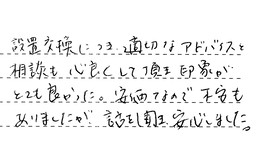 設置交換につき適切なアドバイスと
相談も心良くして頂き印象が
とても良かった。安価なので不安も
ありましたが話を聞き安心しました。